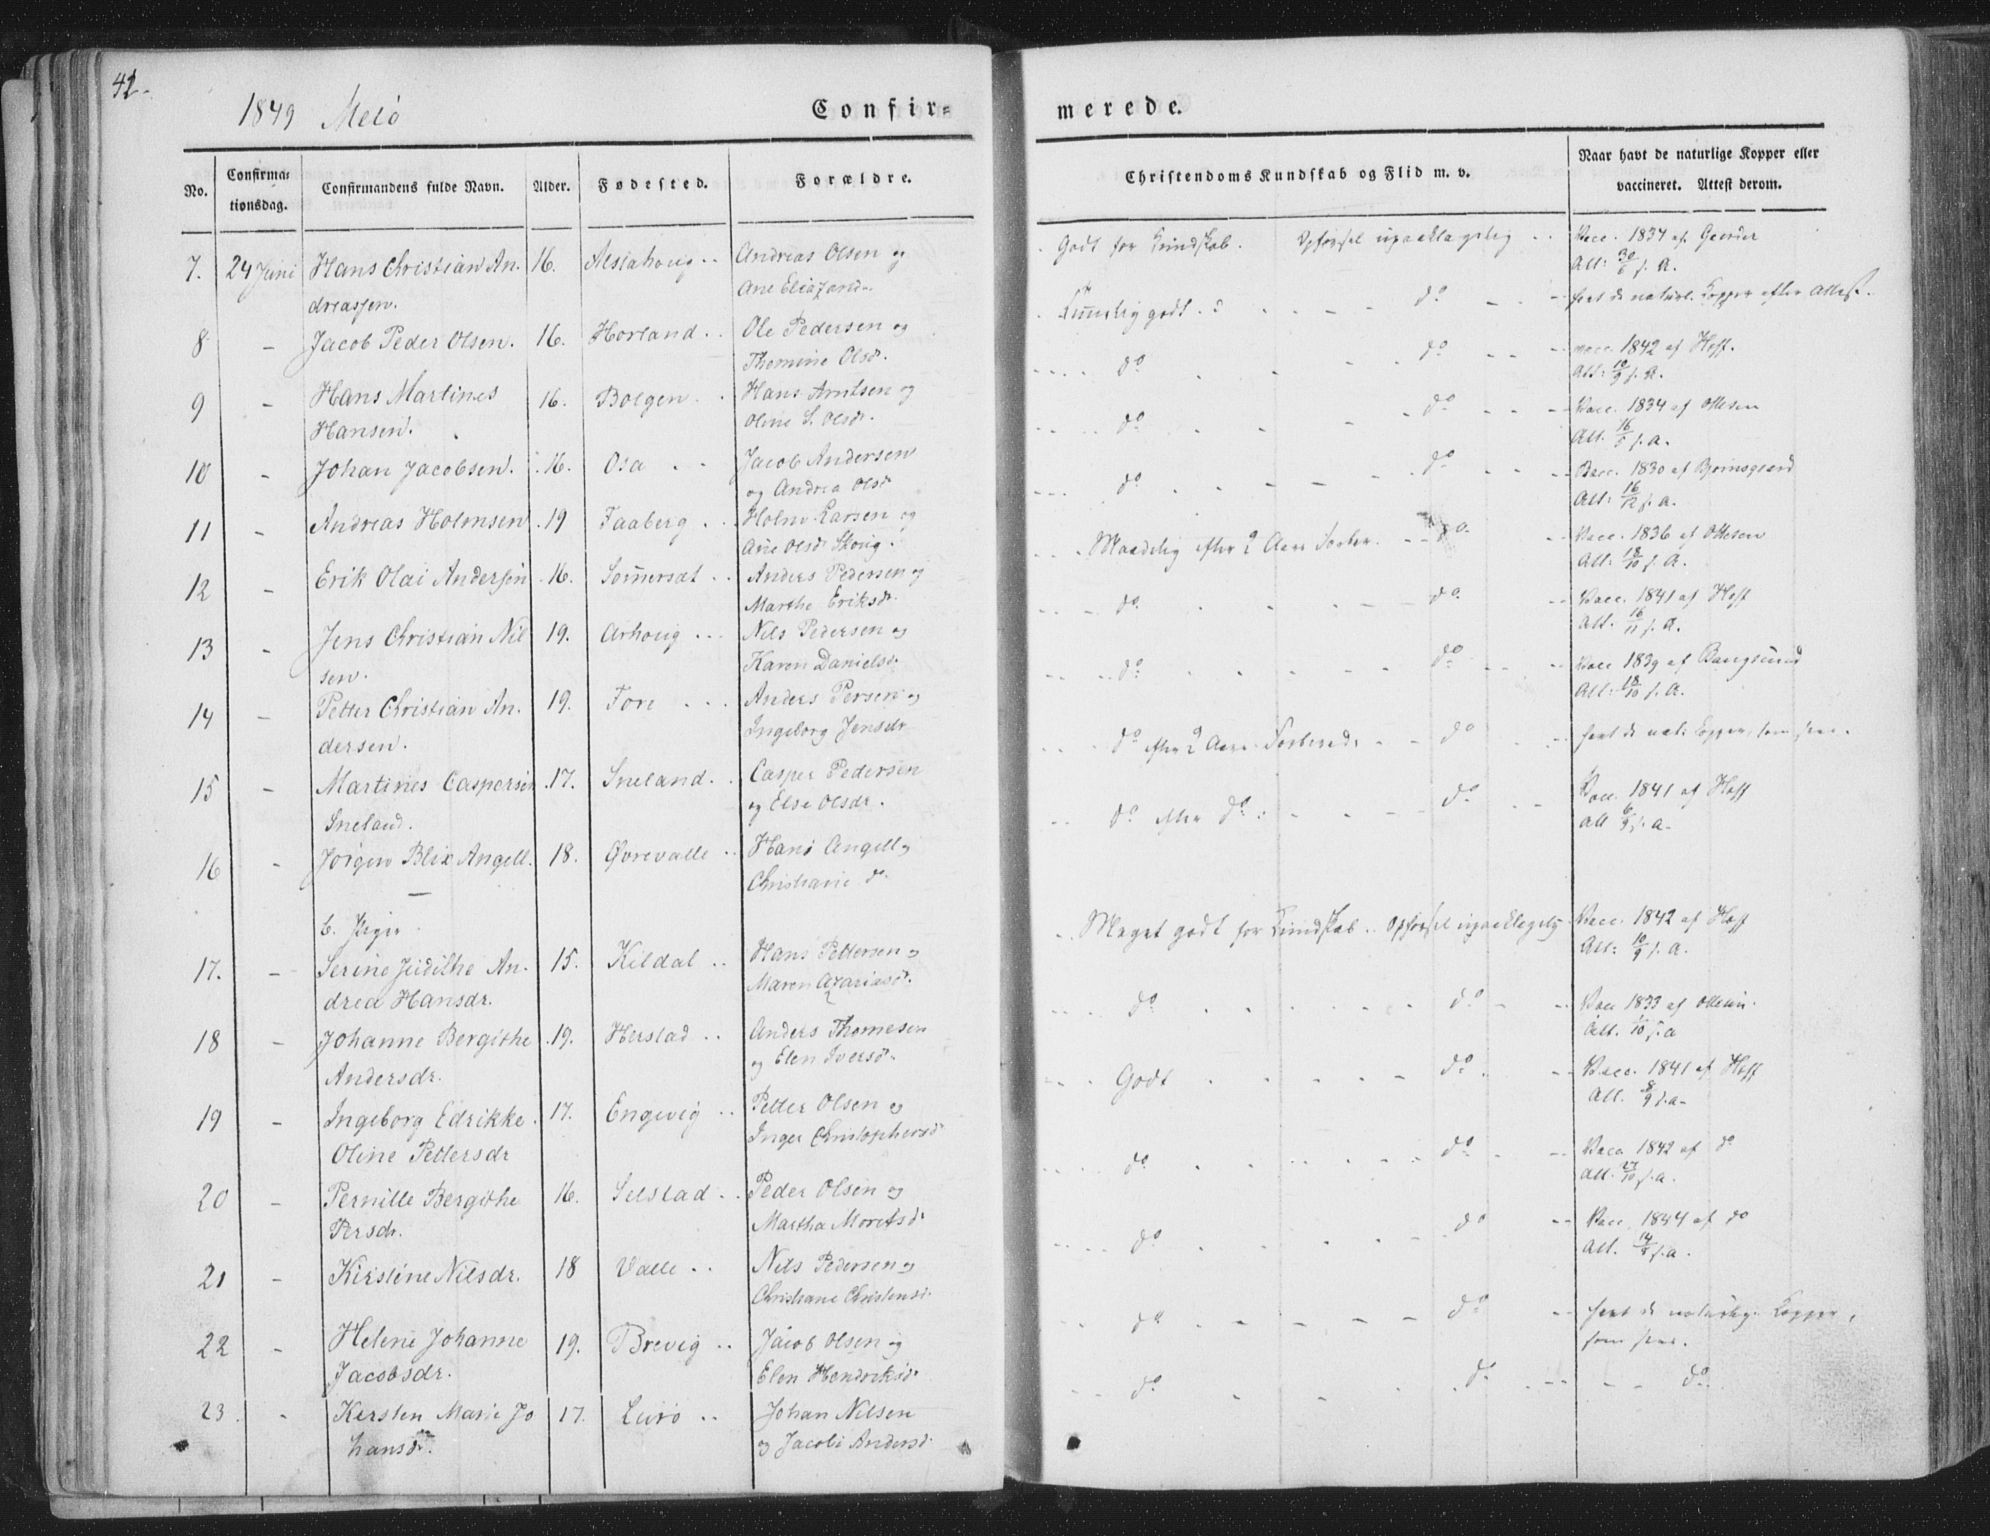 42.
1849 Melö
Confir=
merede.
No.
Confirma=
tionsdag.
Confirmandens fulde Navn.
Alder.
Fødested.
Forældre.
Christendoms Kundskab og Flid m. v.
Naar havt de naturlige Kopper eller
vaccineret. Attest derom.
7. 24 Juni Hans Christian An- 16. Alstahoug .. Andreas Olsen og
dreassen. Ane
Godt for Kundskab. Opførsel upaaklagelig .. Vacc. 1834 af
Att: 30/6 s. A.
8 - Jacob Peder Olsen. 16. Horland .. Ole Pedersen og
Thomine Olsdr.
godt do havt de naturl. Kopper efter Attest.
9 - Hans Martines 16. Bolgen. Hans Arntsen og
Hansen. Oline S. Olsdr.
do do vacc. 1842 af Hoff.
Att: 10/9 s. A.
10 - Johan Jacobsen. 16. Osa .. Jacob Andersen
og Andrea Olsdr
do do Vacc. 1834 af Ottesen
Att. 16/5 s. A.
11 - Andreas Holmsen 19 Faaberg .. Holm Larsen og
Ane Olsdr Storig.
do do Vacc. 1830 af
Att: 16/12 s. A.
12 - Erik Olai Andersen 16. Sommersæt .. Anders Pedersen og
Marthe Eriksdr.
Maadelig efter 2 Aars do Vacc. 1836 af Ottesen
Att: 18/10 s. A.
13 - Jens Christian Nil 19. Arhoug ... Nils Pedersen og
sen. Karen Danielsdr.
do do Vacc. 1841 af Hoff
Att. 16/11 s. A.
14 - Petter Christian An. 19. Fore ... Anders Persen og
dersen. Ingeborg Jensdr
do do Vacc 1839 af Bangsund
Att: 18/10 s. A.
15 - Martines Caspersen 17. Sneland. Casper Pedersen
Sneland. og Else Olsdr.
do efter 2 Aars Forbered: do havt de nat: Kopper, som sees.
16 - Jörgen Blix Angell. 18. Øvrevalle .. Hans Angell og
Christiane do
do efter do: do Vacc. 1841 af Hoff
Att 6/9 s. A.
b. Piger
17. - Serine Jüdithe An- 15. Kildal .. Hans Pettersen og
drea Hansdr. Maren Azariasdr.
Meget godt for Kundskab .. Opførsel upaaklagelig Vacc. 1842 af Hoff
Att: 10/9 s. A.
18 - Johanne Bergithe 19. Herstad .. Anders Thomesen
Andersdr. og Elen Iversdr.
do do Vacc 1833 af Ottesen.
Att. s. A
19 - Ingeborg Edrikke 17. Engevig .. Petter Olsen og
Oline Pettersdr Inger Christophersdr
Godt do Vacc. 1841 af Hoff
Att. 8/9 s. A.
20 - Pernille Bergithe 16. Selstad .. Peder Olsen og
Persdr. Martha Moretsdr
do do Vacc 1842 af do
Att. 27/10 s. A.
21 - Kirstine Nilsdr. 18 Valle .. Nils Pedersen og
Christiane Christensdr.
do do Vacc. 1844 af do
Att. s. A.
22 - Helene Johanne 19. Brevig .. Jacob Olsen og
Jacobsdr. Elen Hendriksdr.
do do havt de naturlige Kopper,
som sees.
23. - Kersten Marie Jo 17. Lurö .. Johan Nilsen
hansdr. og Jacobi Andersdr
do do do